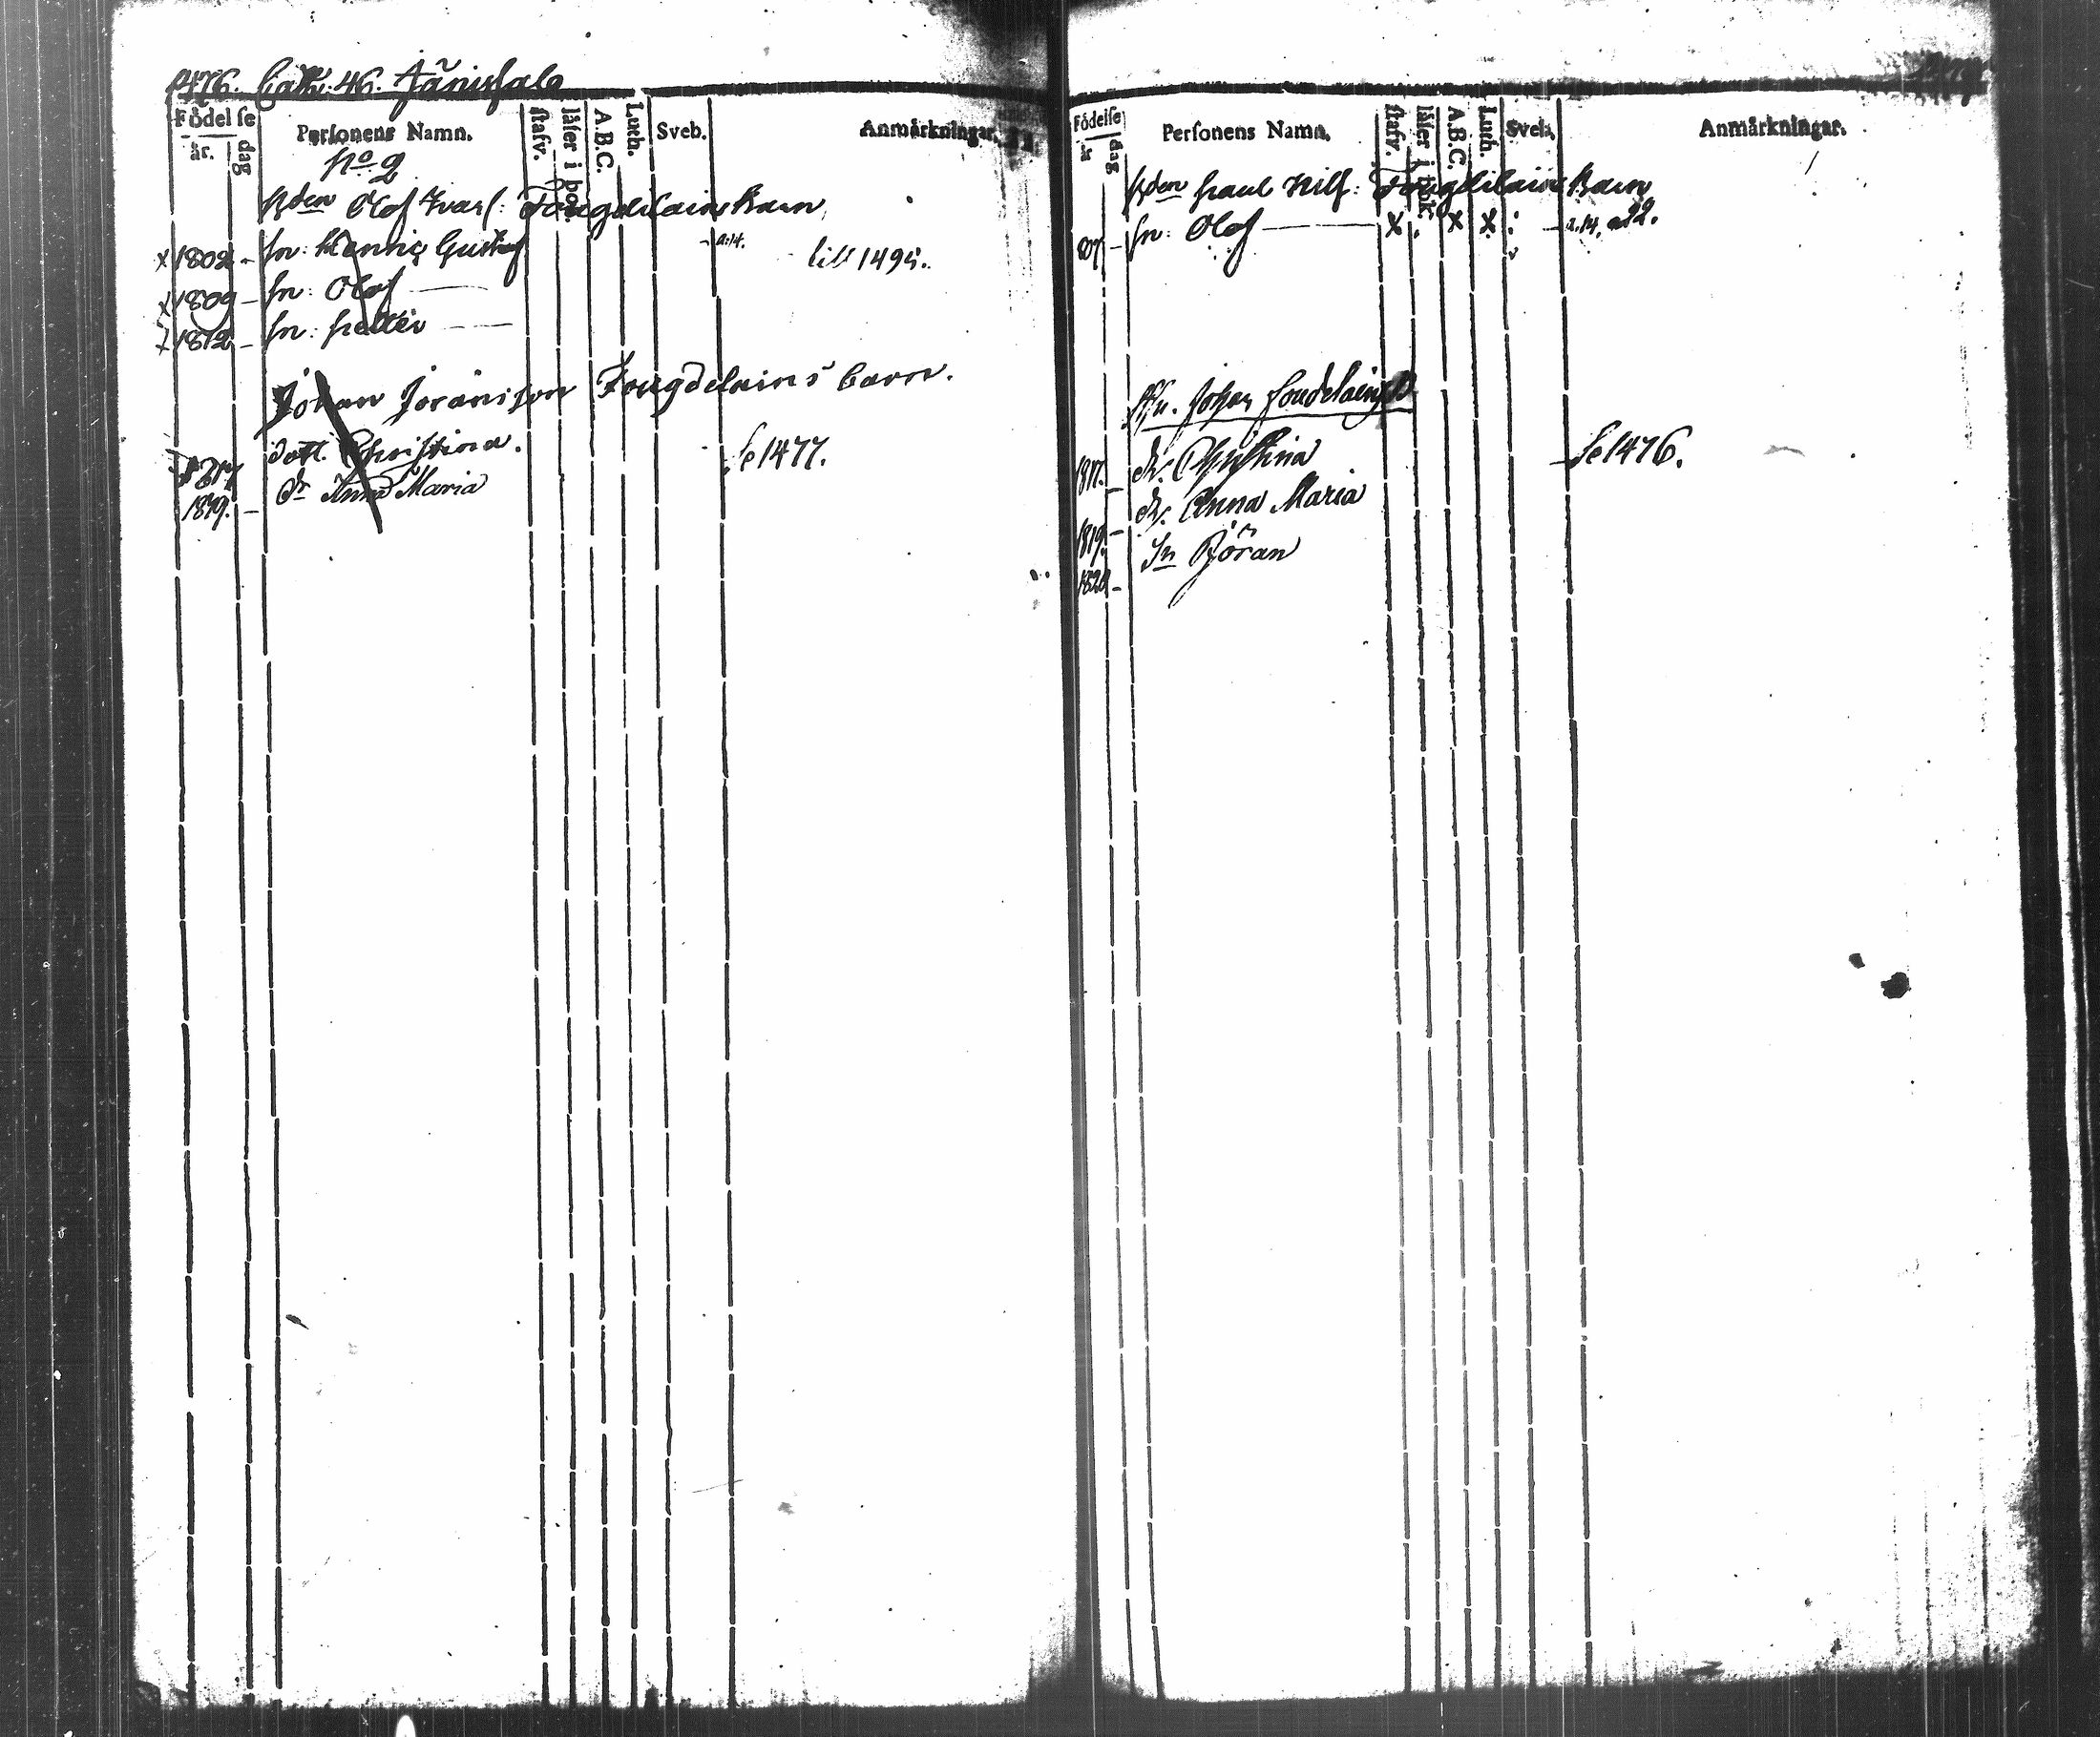 1476. Cath: 46. Jänisfalo
Födelse
år.
dag
Personens Namn.
stafv.
läser i bok.
A.B.C.
Luth.
Sveb.
Anmärkningar.
No 2
Bden Olof Ivars: Fougdelains Barn
x 1802 - sn: Hennic Gustaf - a.14. till 1495.
x 1809 - sn: Olof
x 1812 - sn: Petter
Johan Joransson Fougdelains barn.
1817 dott. Christina. se 1477.
1819. - Dr Anna Maria
Födelse
år
dag
Personens Namn.
stafv.
läser i bok.
A.B.C.
Luth.
Sveb.
Anmärkningar.
Bden Paul Nils: Fougdelains Barn
807 - sn: Olof x x x - a.14. a22.
Johan Foudelains
1817. - dr. Christina - se 1476.
1819. - dr. Anna Maria
1820 - Sn Jöran